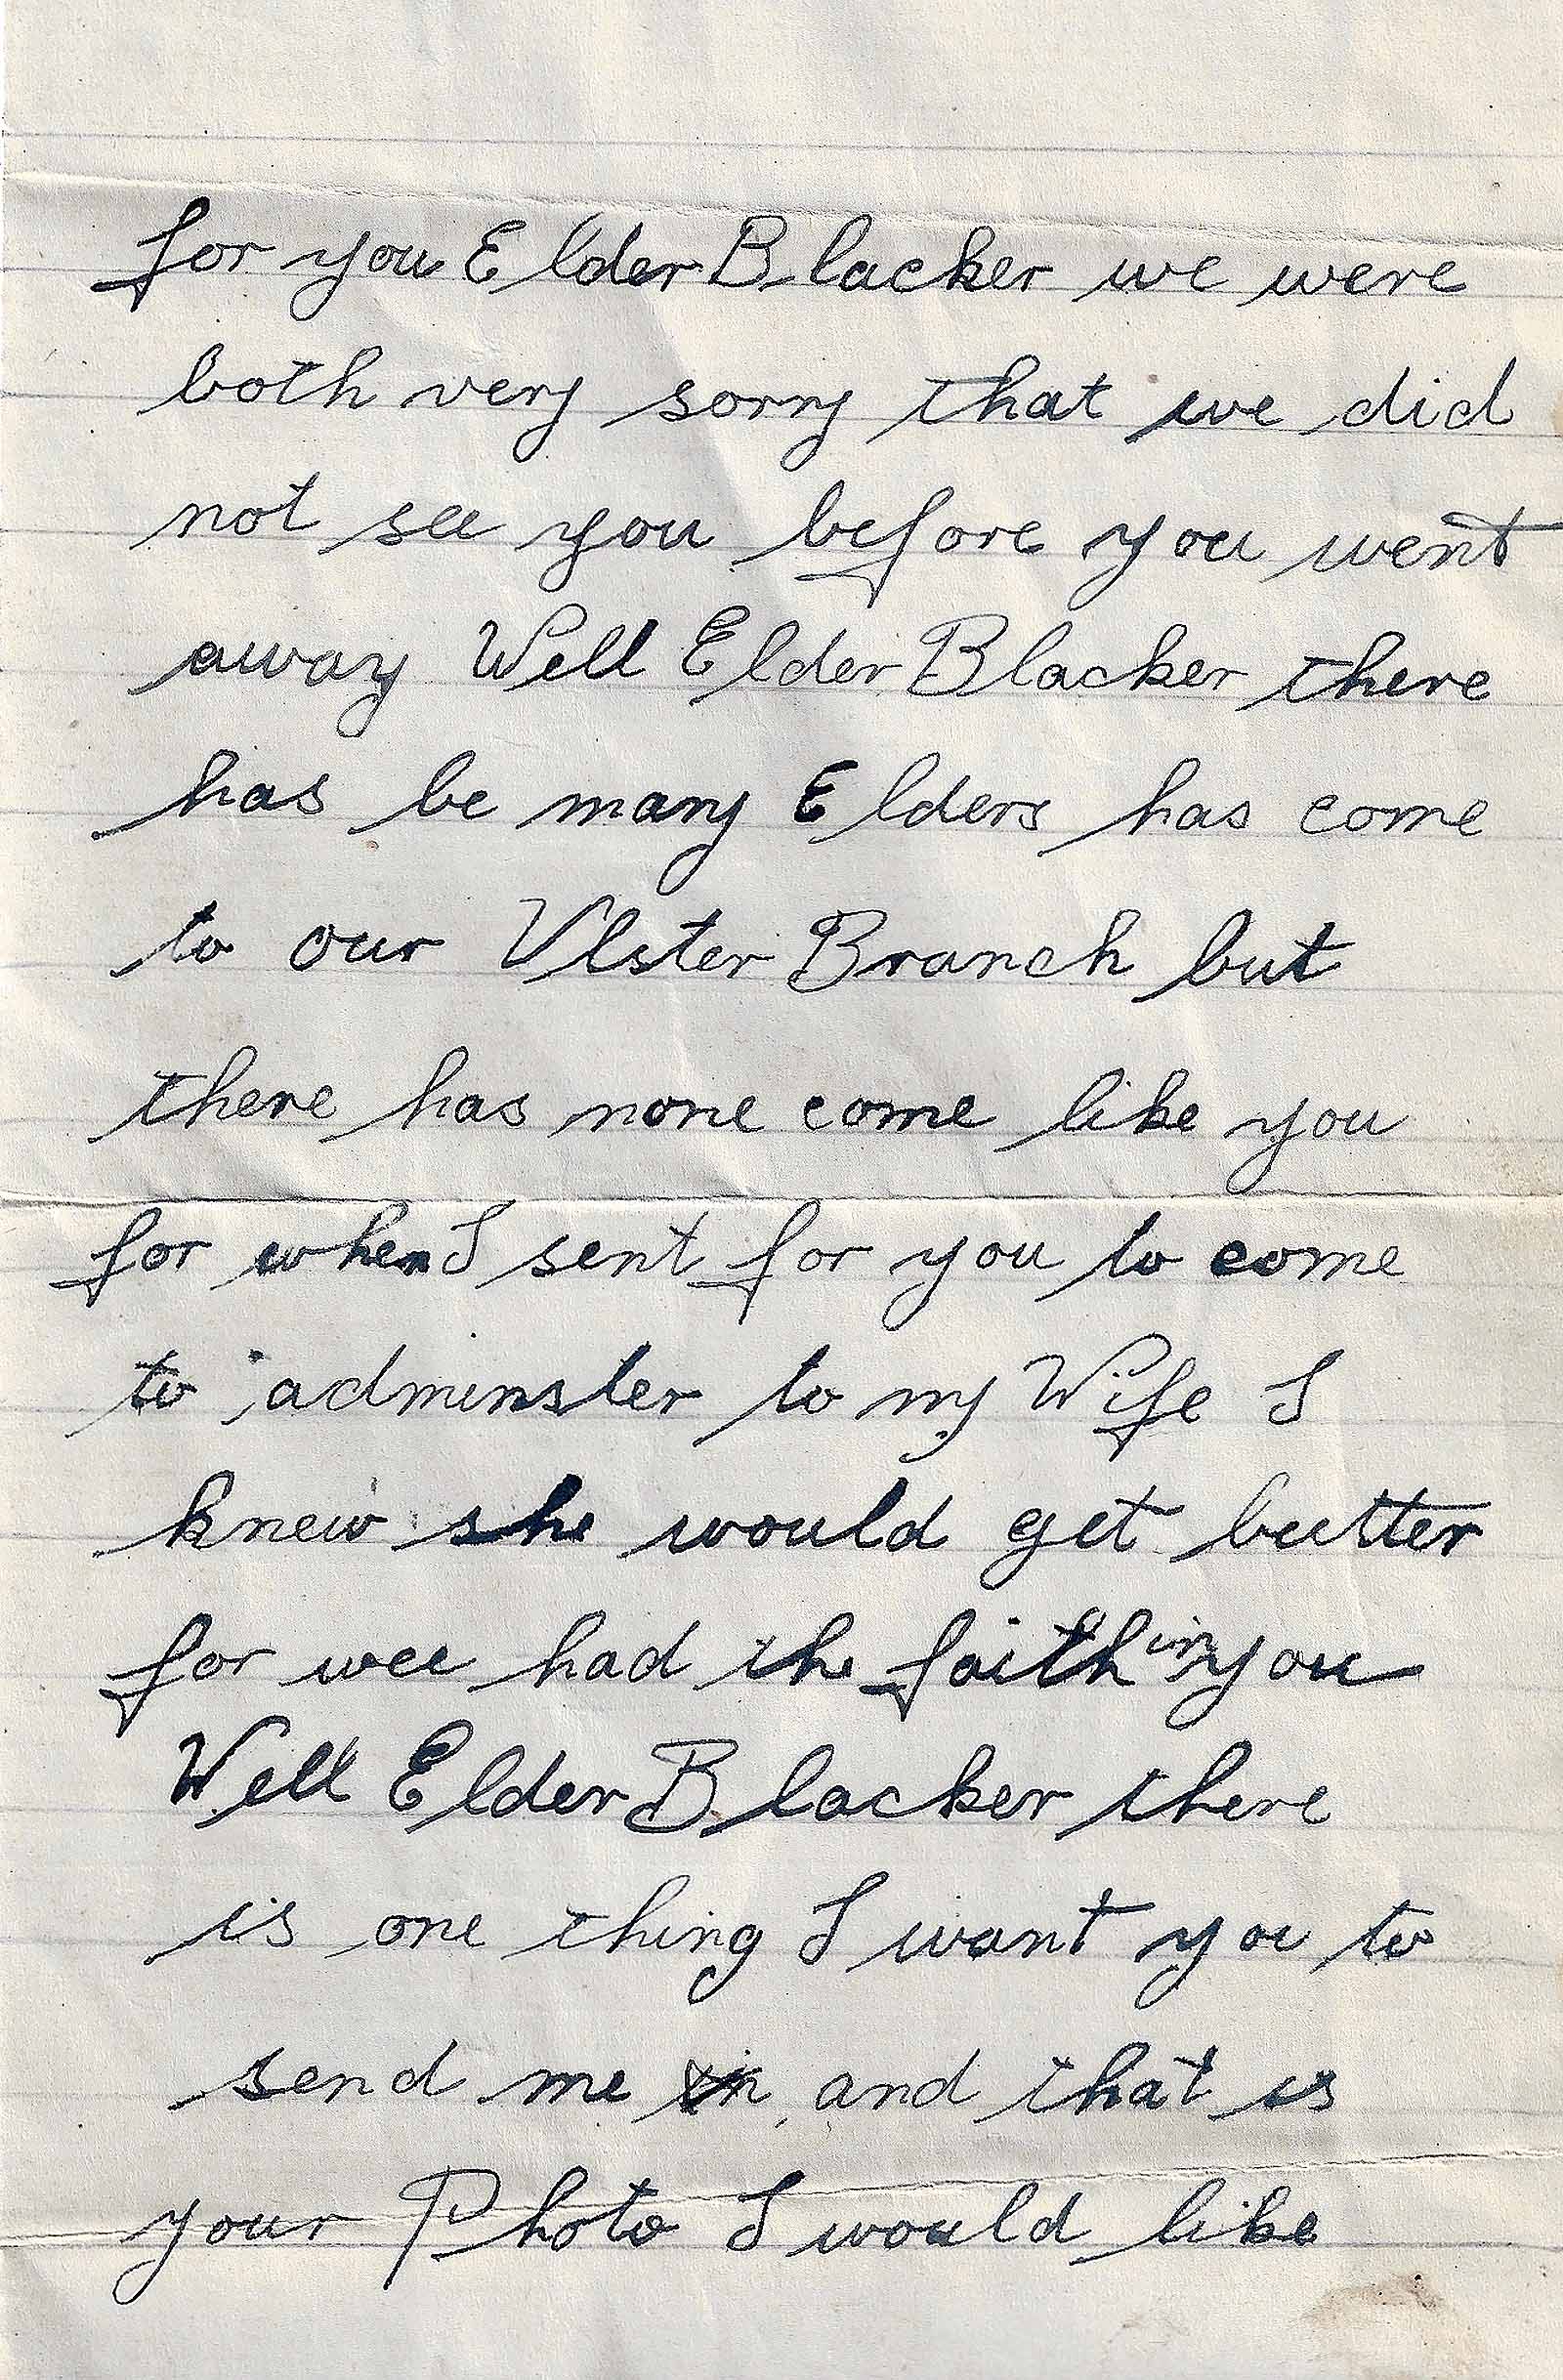 for you Elder Blacker we were
both very sorry that we did
not see you before you went
away Well Elder Blacker there
has be many Elders has come
to our Ulster Branch but
there has none come like you
for when I sent for you to come
to adminster to my Wife I
knew she would get better
for wee had the faith in you
Well Elder Blacker there
is one thing I want you to
send me and that is
your Photo I would like